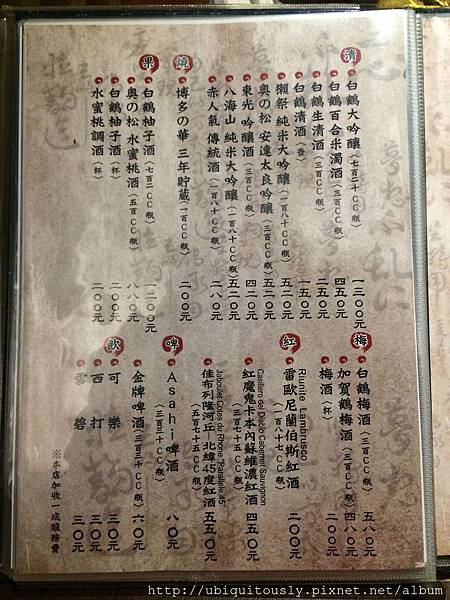 清
白鶴大吟釀(七百二十CC瓶) 一三〇〇元
白鶴百合米濁酒(三百CC瓶) 四五〇元
白鶴生清酒(三百CC瓶) 二五〇元
白鶴清酒(壺) 一五〇元
獺祭 純米大吟釀(一百八十CC瓶) 五二〇元
奧の松 安達太良吟釀(三百CC瓶) 五二〇元
東光 吟釀酒(三百CC瓶) 四二〇元
八海山 純米大吟釀(一百八十CC瓶) 五二〇元
赤人氣 傳統酒(一百八十CC瓶) 二八〇元
燒
博多の華 三年貯蔵(一百CC瓶) 二〇〇元
果
白鶴柚子酒(七百二CC瓶) 一二〇〇元
奧の松 水蜜桃酒(五百CC瓶) 八八〇元
白鶴柚子酒(杯) 二〇〇元
水蜜桃調酒(杯) 二〇〇元
梅
白鶴梅酒(三百CC瓶) 五八〇元
加賀鶴梅酒(三百CC瓶) 四八〇元
梅酒(杯) 二〇〇元
紅
Riunite Lambrusco
雷歐尼蘭伯斯紅酒(一百八十七CC瓶) 二〇〇元
Casillero del Diablo Cabernet Sauvignon
紅魔鬼卡本內蘇維濃紅酒(三百七十五CC瓶) 四五〇元
Jaboulet Cotes du Rhone "Parallele 45"
佳布列隆河丘—北緯45度紅酒(三百七十五CC瓶) 五五〇元
啤
Asahi啤酒(三百三十CC瓶) 八〇元
金牌啤酒(三百三十CC瓶) 六〇元
飲
可樂 三〇元
西打 三〇元
雪碧 三〇元
※本店加收一成服務費
http://ubiquitously.pixnet.net/album